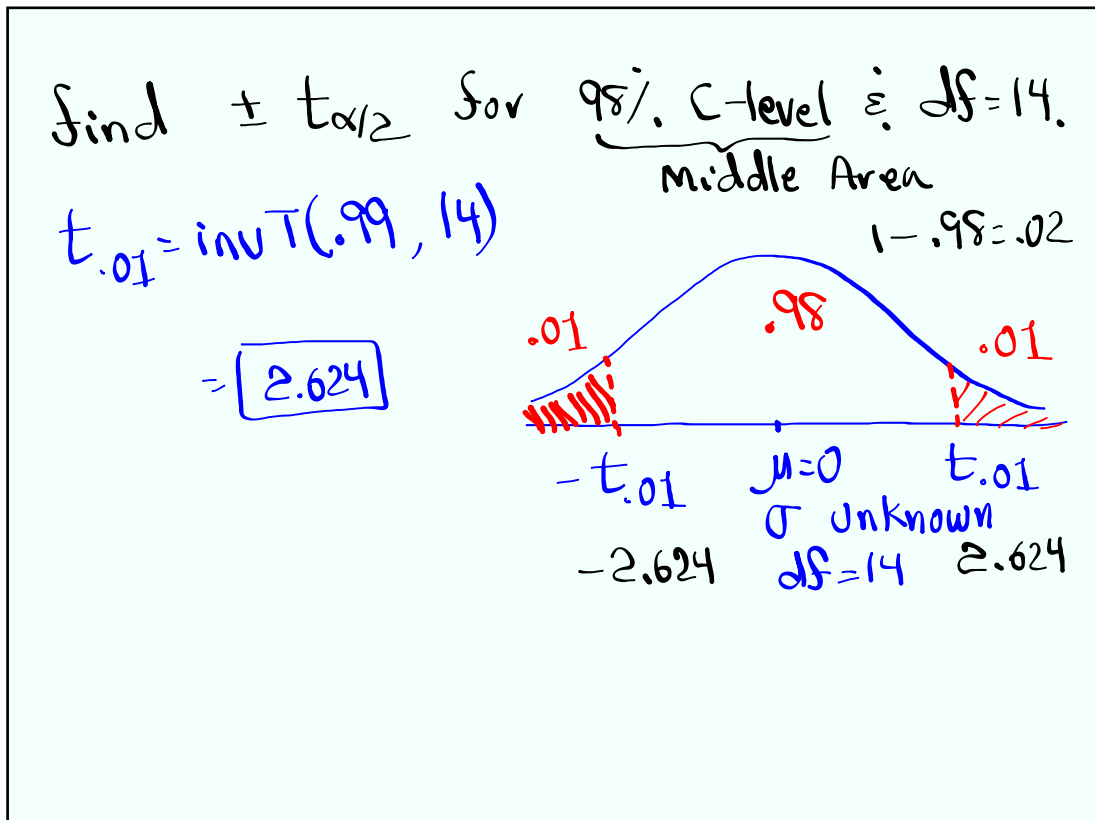 find ± tα/2 for 98% C-level & df=14.
Middle Area
1-.98=.02
t.01 = invT(.99, 14)
= 2.624
.01 .98 .01
-t.01 μ=0 t.01
σ unknown
-2.624 df=14 2.624